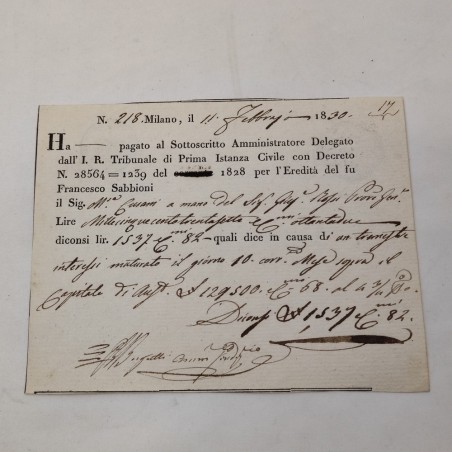 N. 218. Milano, il 11 Febbrajo 1830.
17
Ha —— pagato al Sottoscritto Amministratore Delegato
dall'I. R. Tribunale di Prima Istanza Civile con Decreto
N. 28564=1239 del 1828 per l'Eredità del fu
Francesco Sabbioni
il Sig. a mano del Sig.
Lire Millecinquecentotrentasette C.mi ottantadue
diconsi lir. 1537 C.mi 82 — quali dice in causa di un trimestre
interessi maturato il giorno 10 corr. Mese sopra il
Capitale di 129500. C.mi 68. al
Diconsi 1,537 C.mi 82.